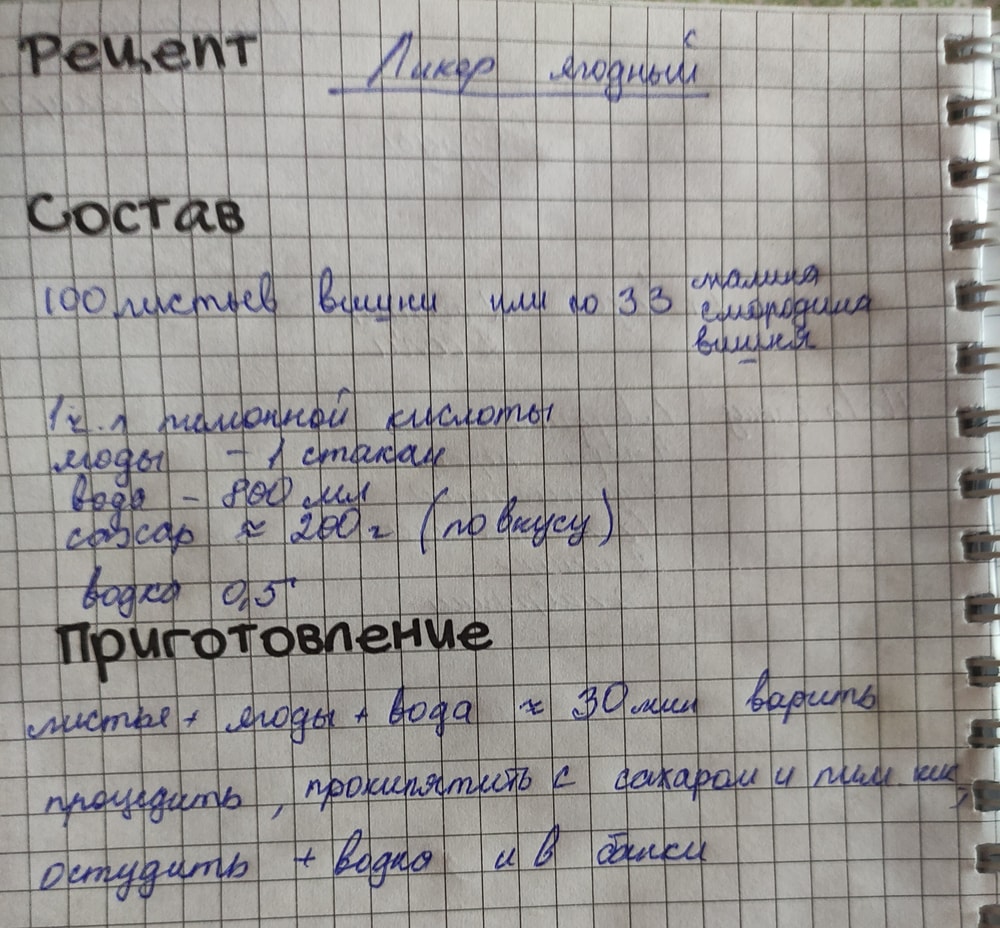 Рецепт Ликер ягодный
Состав
100 листьев вишни или по 33 малина
смородина
вишня
1 ч. л лимонной кислоты
ягоды - 1 стакан
вода - 800 мл
сахар ≈ 200 г (по вкусу)
водка 0,5
Приготовление
листья + ягоды + вода ≈ 30 мин варить
процедить, прокипятить с сахаром и лим кис,
остудить + водка и в банки